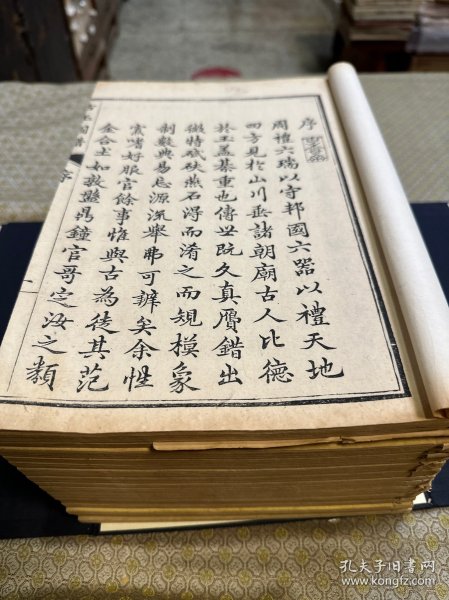 序
周禮六瑞以守邦國六器以禮天地
四方見於山川垂諸朝廟古人比德
於玉蓋綦重也傳世既久真贗錯出
微特碔砆燕石得而淆之而規模象
制數典易忘源流舉弗可辨矣余性
寡嗜好服官餘事惟與古為徒其范
金合土如敦盤鼎鐘官哥定汝之類
序
一
孔夫子旧书网
www.kongfz.com